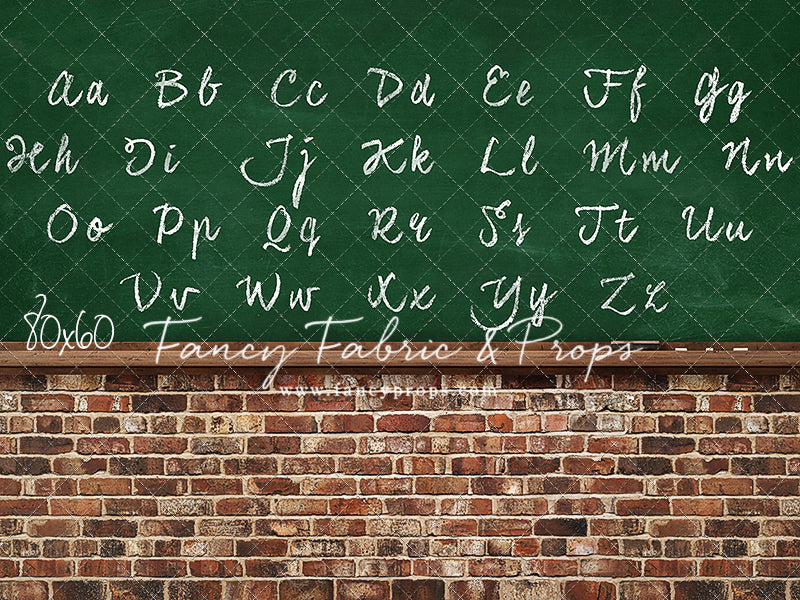 Aa Bb Cc Dd Ee Ff Gg
Hh Ii Jj Kk Ll Mm Nn
Oo Pp Qq Rr Ss Tt Uu
Vv Ww Xx Yy Zz
80x60
Fancy Fabric & Props
www.fancyprops.com